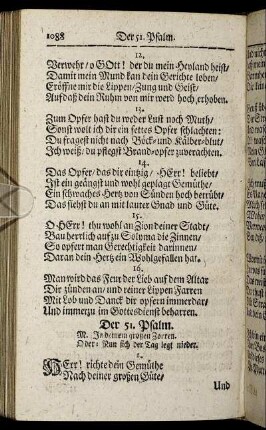 1088 Der 51. Psalm.
12.
Verwehr / o GOtt! der du mein Heyland heist /
Damit mein Mund kan dein Gerichte loben /
Eröffne mir die Lippen / Zung und Geist /
Auf daß dein Ruhm von mir werd hoch erhoben.
13.
Zum Opfer hast du weder Lust noch Muth /
Sonst wolt ich dir ein fettes Opfer schlachten:
Du fragest nicht nach Böck- und Kälber-blut /
Ich weiß / du pflegst Brand-opfer zu verachten.
14.
Das Opfer / das dir eintzig / HErr! beliebt /
Ist ein geängst und wohl geplagt Gemüthe /
Ein schwaches Hertz von Sünden hoch betrübt /
Das siehst du an mit lauter Gnad und Güte.
15.
O HErr! thu wohl an Zion deiner Stadt /
Bau herrlich auf zu Solyma die Zinnen /
So opfert man Gerechtigkeit darinnen /
Daran dein Hertz ein Wohlgefallen hat.
16.
Man wird das Feur der Lieb auf dem Altar
Dir zünden an / und seiner Lippen Farren
Mit Lob und Danck dir opfern immerdar /
Und immerzu im Gottesdienst beharren.
Der 51. Psalm.
M. In deinem großen Zorren.
Oder: Nun sich der Tag legt nieder.
1.
HErr! richte dein Gemüthe
Nach deiner großen Güte /
Und